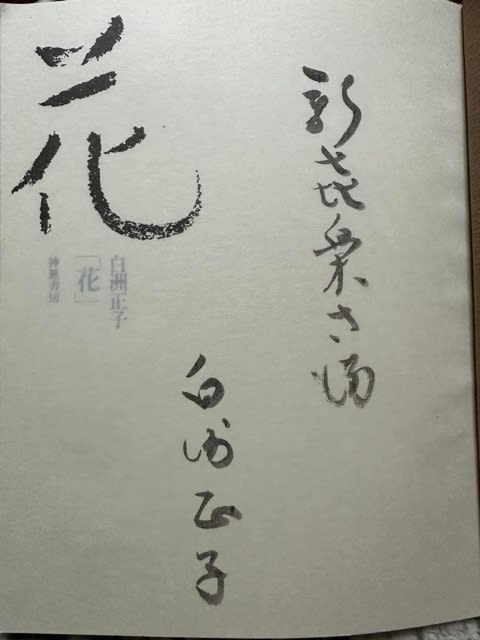 新㐂楽さ満
白洲正子
花
白洲正子
「花」
神無書房